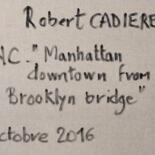 Robert CADIERE
NC. "Manhattan
downtown from
Brooklyn bridge"
octobre 2016